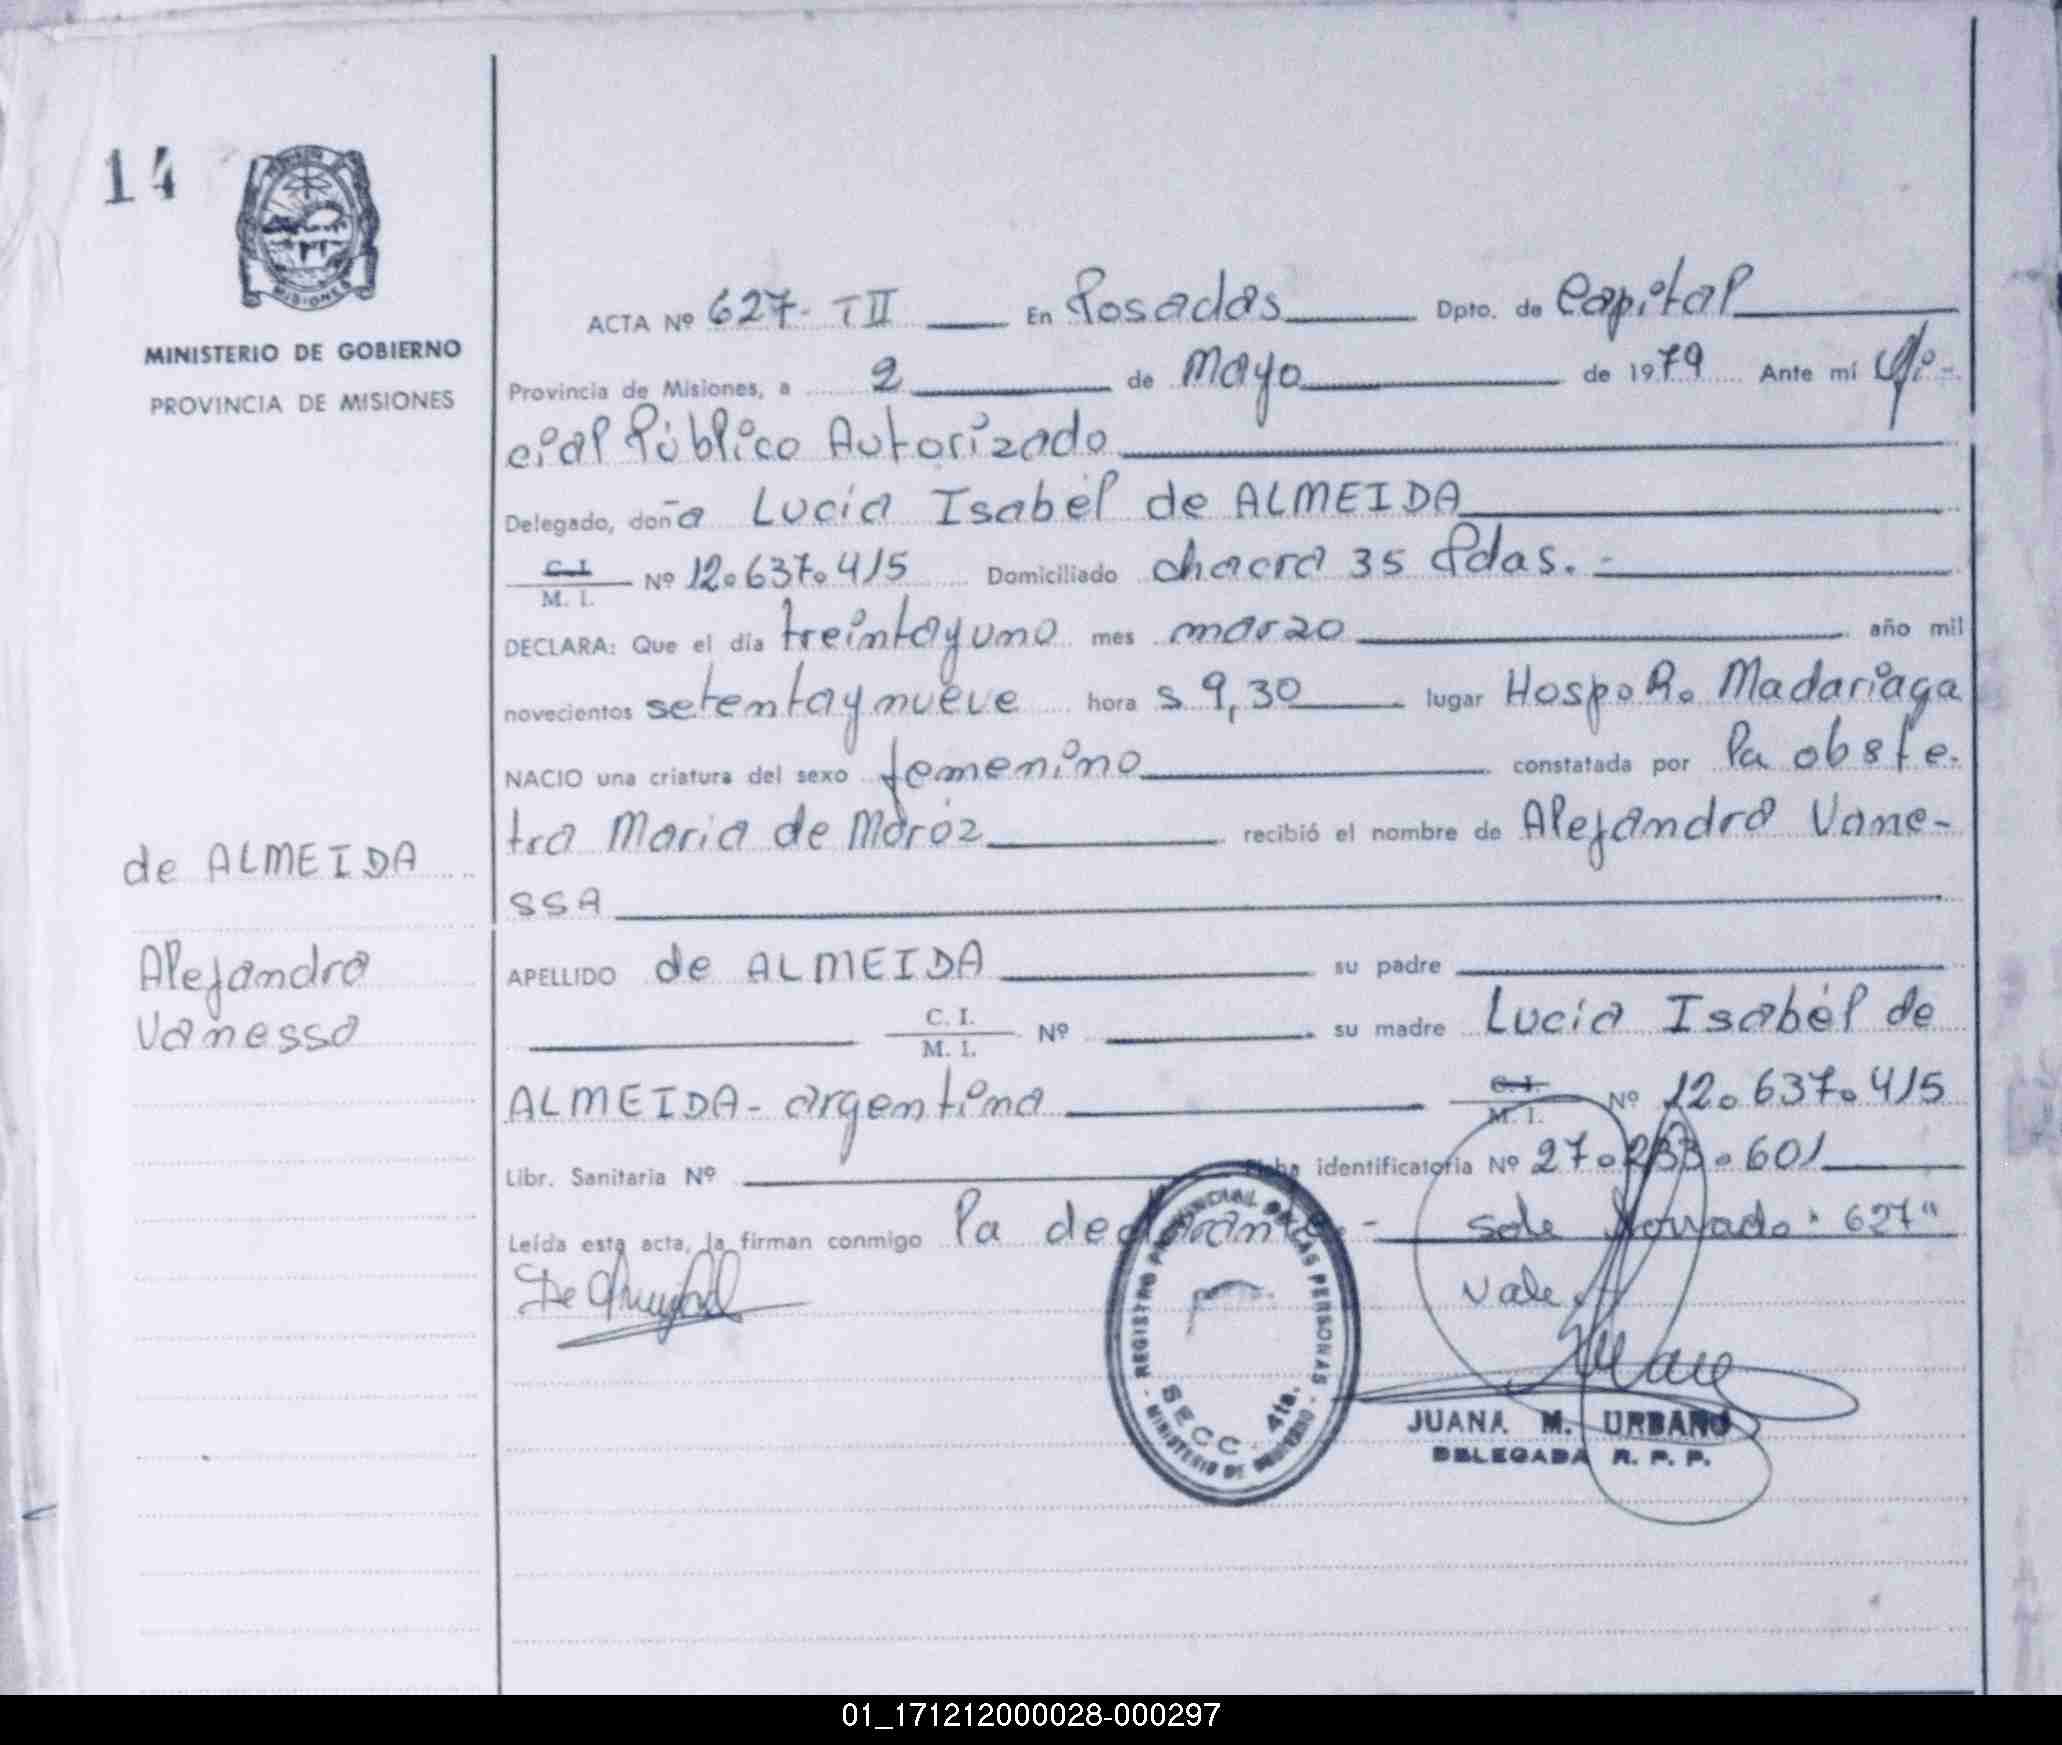 14
MISIONES
MINISTERIO DE GOBIERNO
PROVINCIA DE MISIONES
de ALMEIDA
Alejandra
Vanessa
ACTA Nº 627- TII En Posadas Dpto. de Capital
Provincia de Misiones, a 2 de Mayo de 1979 Ante mí Ofi-
cial Público Autorizado
Delegado, doña Lucia Isabel de ALMEIDA
C. I. M. I. Nº 12.637.415 Domiciliado chacra 35 Pdas.-
DECLARA: Que el día treintayuno mes marzo año mil
novecientos setentaynueve hora s 9,30 lugar Hosp. R. Madariaga
NACIO una criatura del sexo femenino constatada por la obste-
tra Maria de Moroz recibió el nombre de Alejandra Vane-
SSA
APELLIDO de ALMEIDA su padre
C. I. M. I. Nº su madre Lucia Isabel de
ALMEIDA- argentina C. I. M. I. Nº 12.637.415
Libr. Sanitaria Nº Ficha identificatoria Nº 27.233.601
Leída esta acta, la firman conmigo la declarante.- 627"
Vale
REGISTRO PROVINCIAL DE LAS PERSONAS
SECC. 4ta.
- MINISTERIO DE GOBIERNO -
JUANA M. URBANO
DELEGADA R. P. P.
01_171212000028-000297